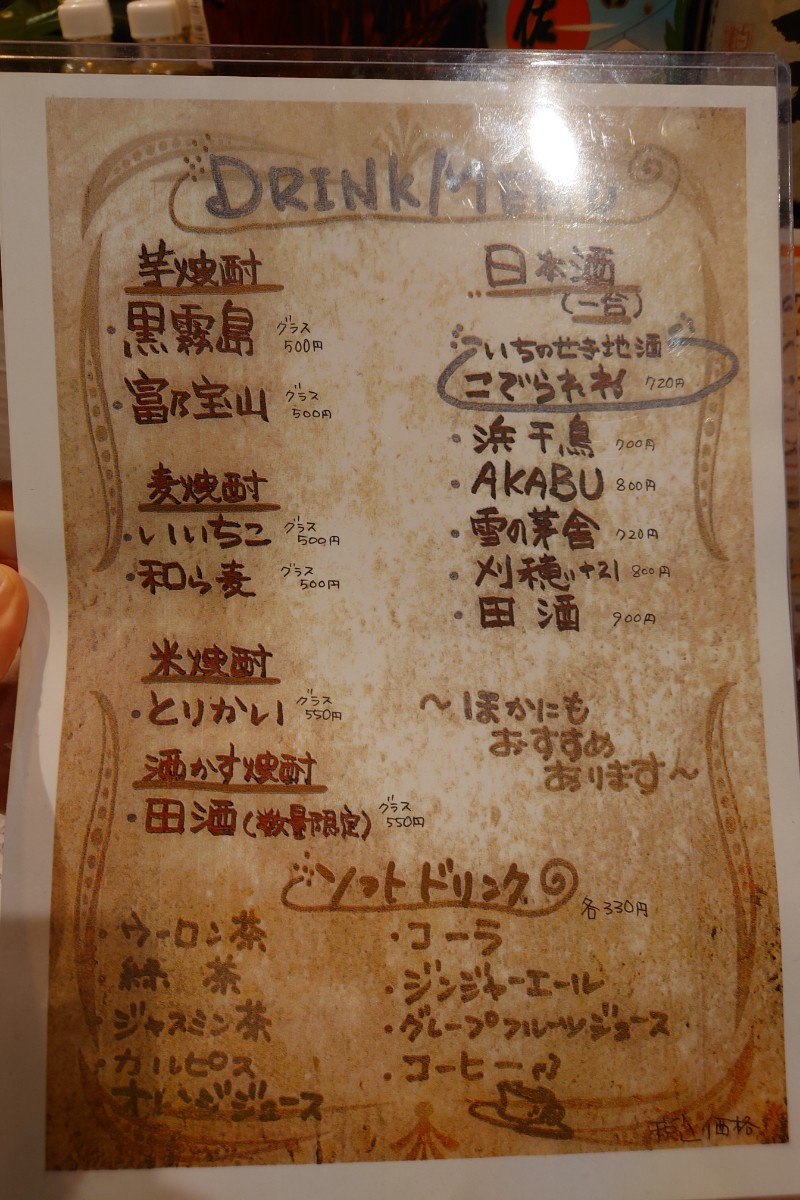 DRINK MENU
芋焼酎
・黒霧島 グラス 500円
・富乃宝山 グラス 500円
麦焼酎
・いいちこ グラス 500円
・和ら麦 グラス 500円
米焼酎
・とりかい グラス 550円
酒かす焼酎
・田酒(数量限定) グラス 550円
日本酒
(一合)
いちのせき地酒
こでられねぇ 720円
・浜千鳥 700円
・AKABU 800円
・雪の茅舎 720円
・刈穂 +21 800円
・田酒 900円
〜ほかにも
おすすめ
あります〜
ソフトドリンク 各330円
・ウーロン茶
・緑茶
・ジャスミン茶
・カルピス
オレンジジュース
・コーラ
・ジンジャーエール
・グレープフルーツジュース
・コーヒー
税込価格